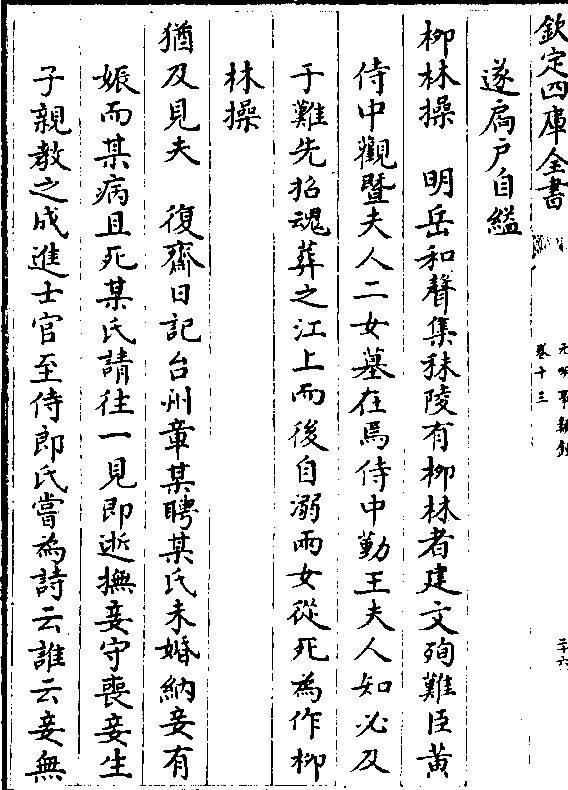 欽定四庫全書
卷十三
遂扃戶自縊
柳林操　明岳和聲集秣陵有柳林者建文殉難臣黃
侍中觀暨夫人二女墓在焉侍中勤王夫人知必及
于難先招魂葬之江上而後自溺兩女從死為作柳
林操
猶及見夫　復齋日記台州章某聘某氏未婚納妾有
娠而某病且死某氏請往一見即逝撫妾守喪妾生
子親教之成進士官至侍郎氏嘗為詩云誰云妾無